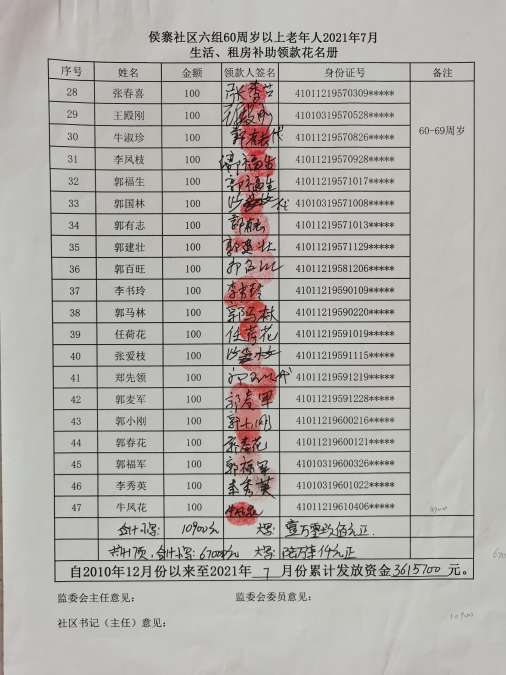 侯寨社区六组60周岁以上老年人2021年7月
生活、租房补助领款花名册
序号 姓名 金额 领款人签名 身份证号 备注
28 张春喜 100 41011219570309*****
29 王殿刚 100 41010319570528*****
30 牛淑珍 100 41011219570826***** 60-69周岁
31 李凤枝 100 41011219570928*****
32 郭福生 100 郭福生 41011219571017*****
33 郭国林 100 41010319571008*****
34 郭有志 100 郭有志 41011219571013*****
35 郭建壮 100 郭建壮 41011219571129*****
36 郭百旺 100 41011219581206*****
37 李书玲 100 李书玲 41011219590109*****
38 郭马林 100 郭马林 41011219590220*****
39 任荷花 100 任荷花 41011219591019*****
40 张爱枝 100 41011219591115*****
41 郑先领 100 41011219591219*****
42 郭麦军 100 郭麦军 41011219591228*****
43 郭小刚 100 郭小刚 41011219600216*****
44 郭春花 100 郭春花 41011219600121*****
45 郭福军 100 郭福军 41010319600326*****
46 李秀英 100 李秀英 41010319601022*****
47 牛凤花 100 41011219610406*****
合计小写: 10900元 大写: 壹万零玖佰元正
合计小写: 67000元 大写: 陆万柒仟元正
自2010年12月份以来至2021年 7 月份累计发放资金3615700元。
监委会主任意见: 监委会委员意见:
社区书记（主任）意见:
10900